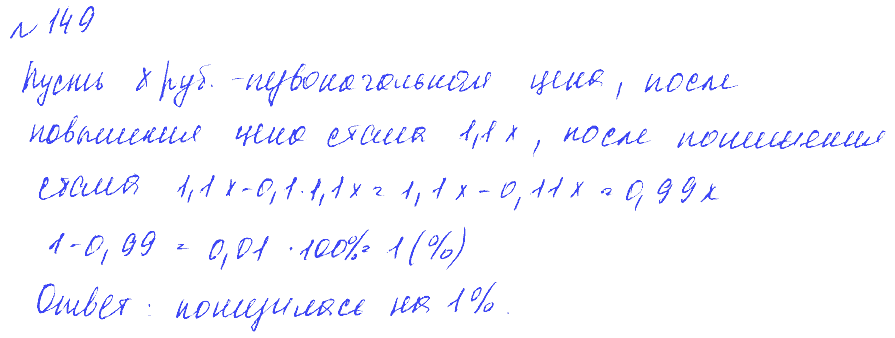 № 149
Пусть x руб. - первоначальная цена, после
повышения цена стала 1,1x, после понижения
стала 1,1x-0,1·1,1x = 1,1x-0,11x = 0,99x
1-0,99 = 0,01 · 100% = 1(%)
Ответ: понизилась на 1%.